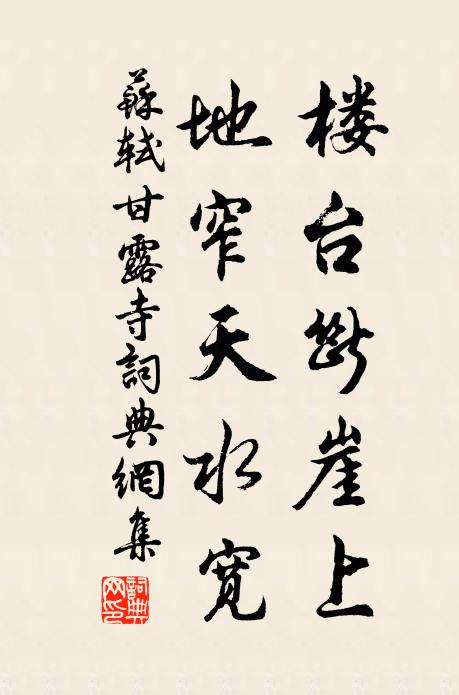 楼台断崖上
地窄天水宽
蘇軾甘露寺詞典網集
詞典网印